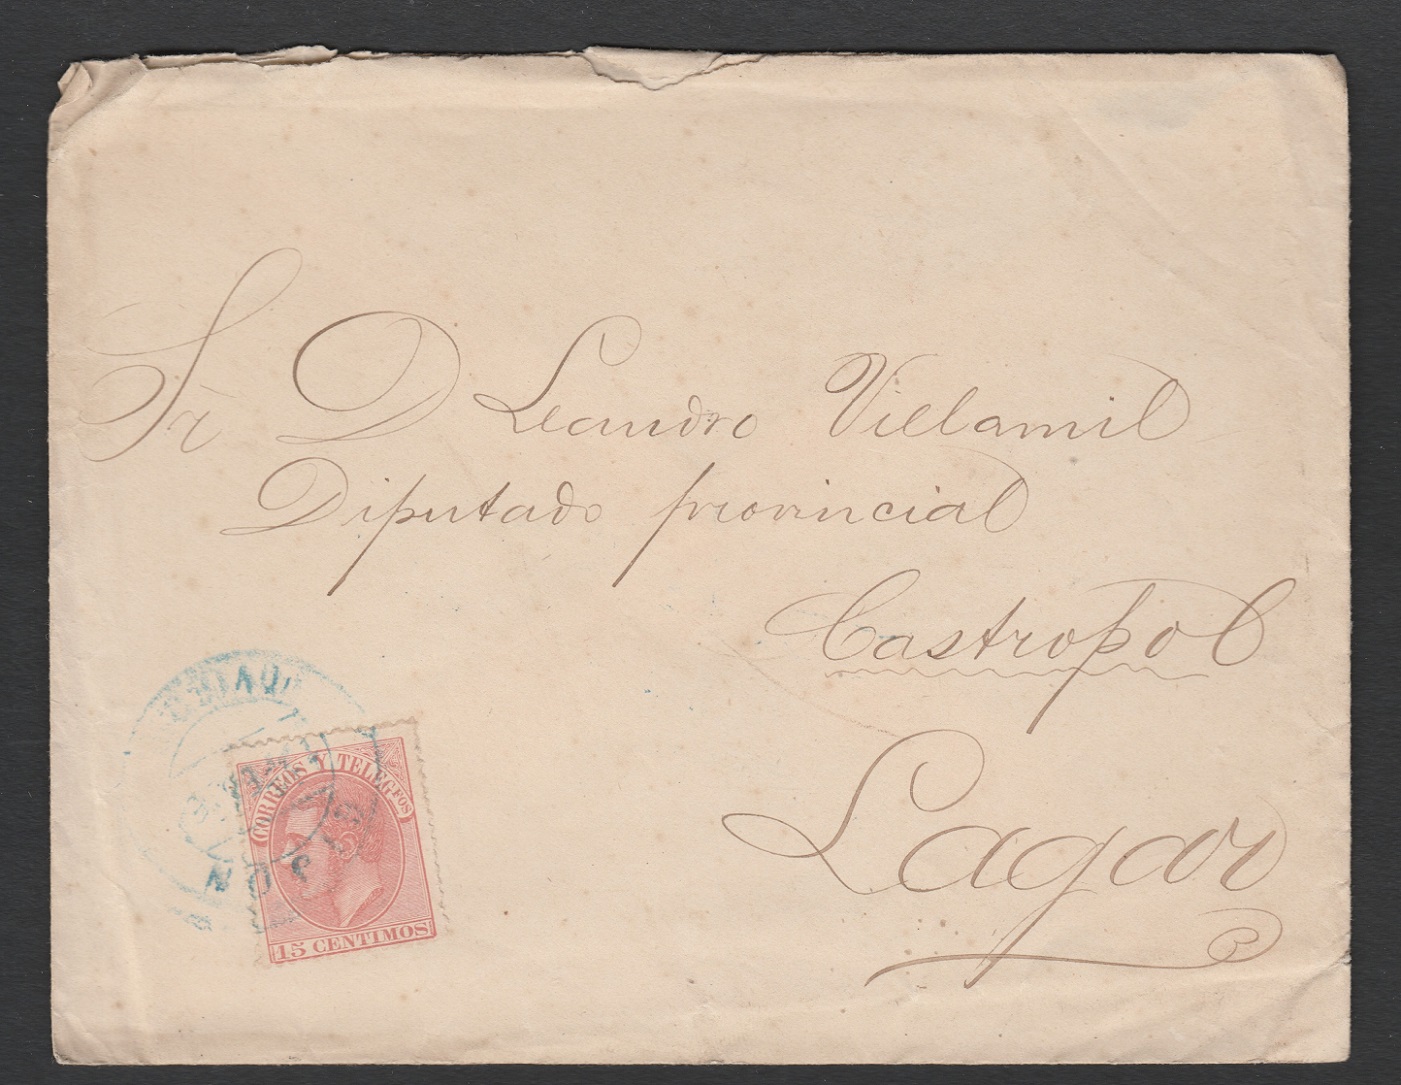 Sr D Leandro Villamil
Diputado provincial
Castropol
Lagar
CORREOS Y TELEGFOS
15 CENTIMOS